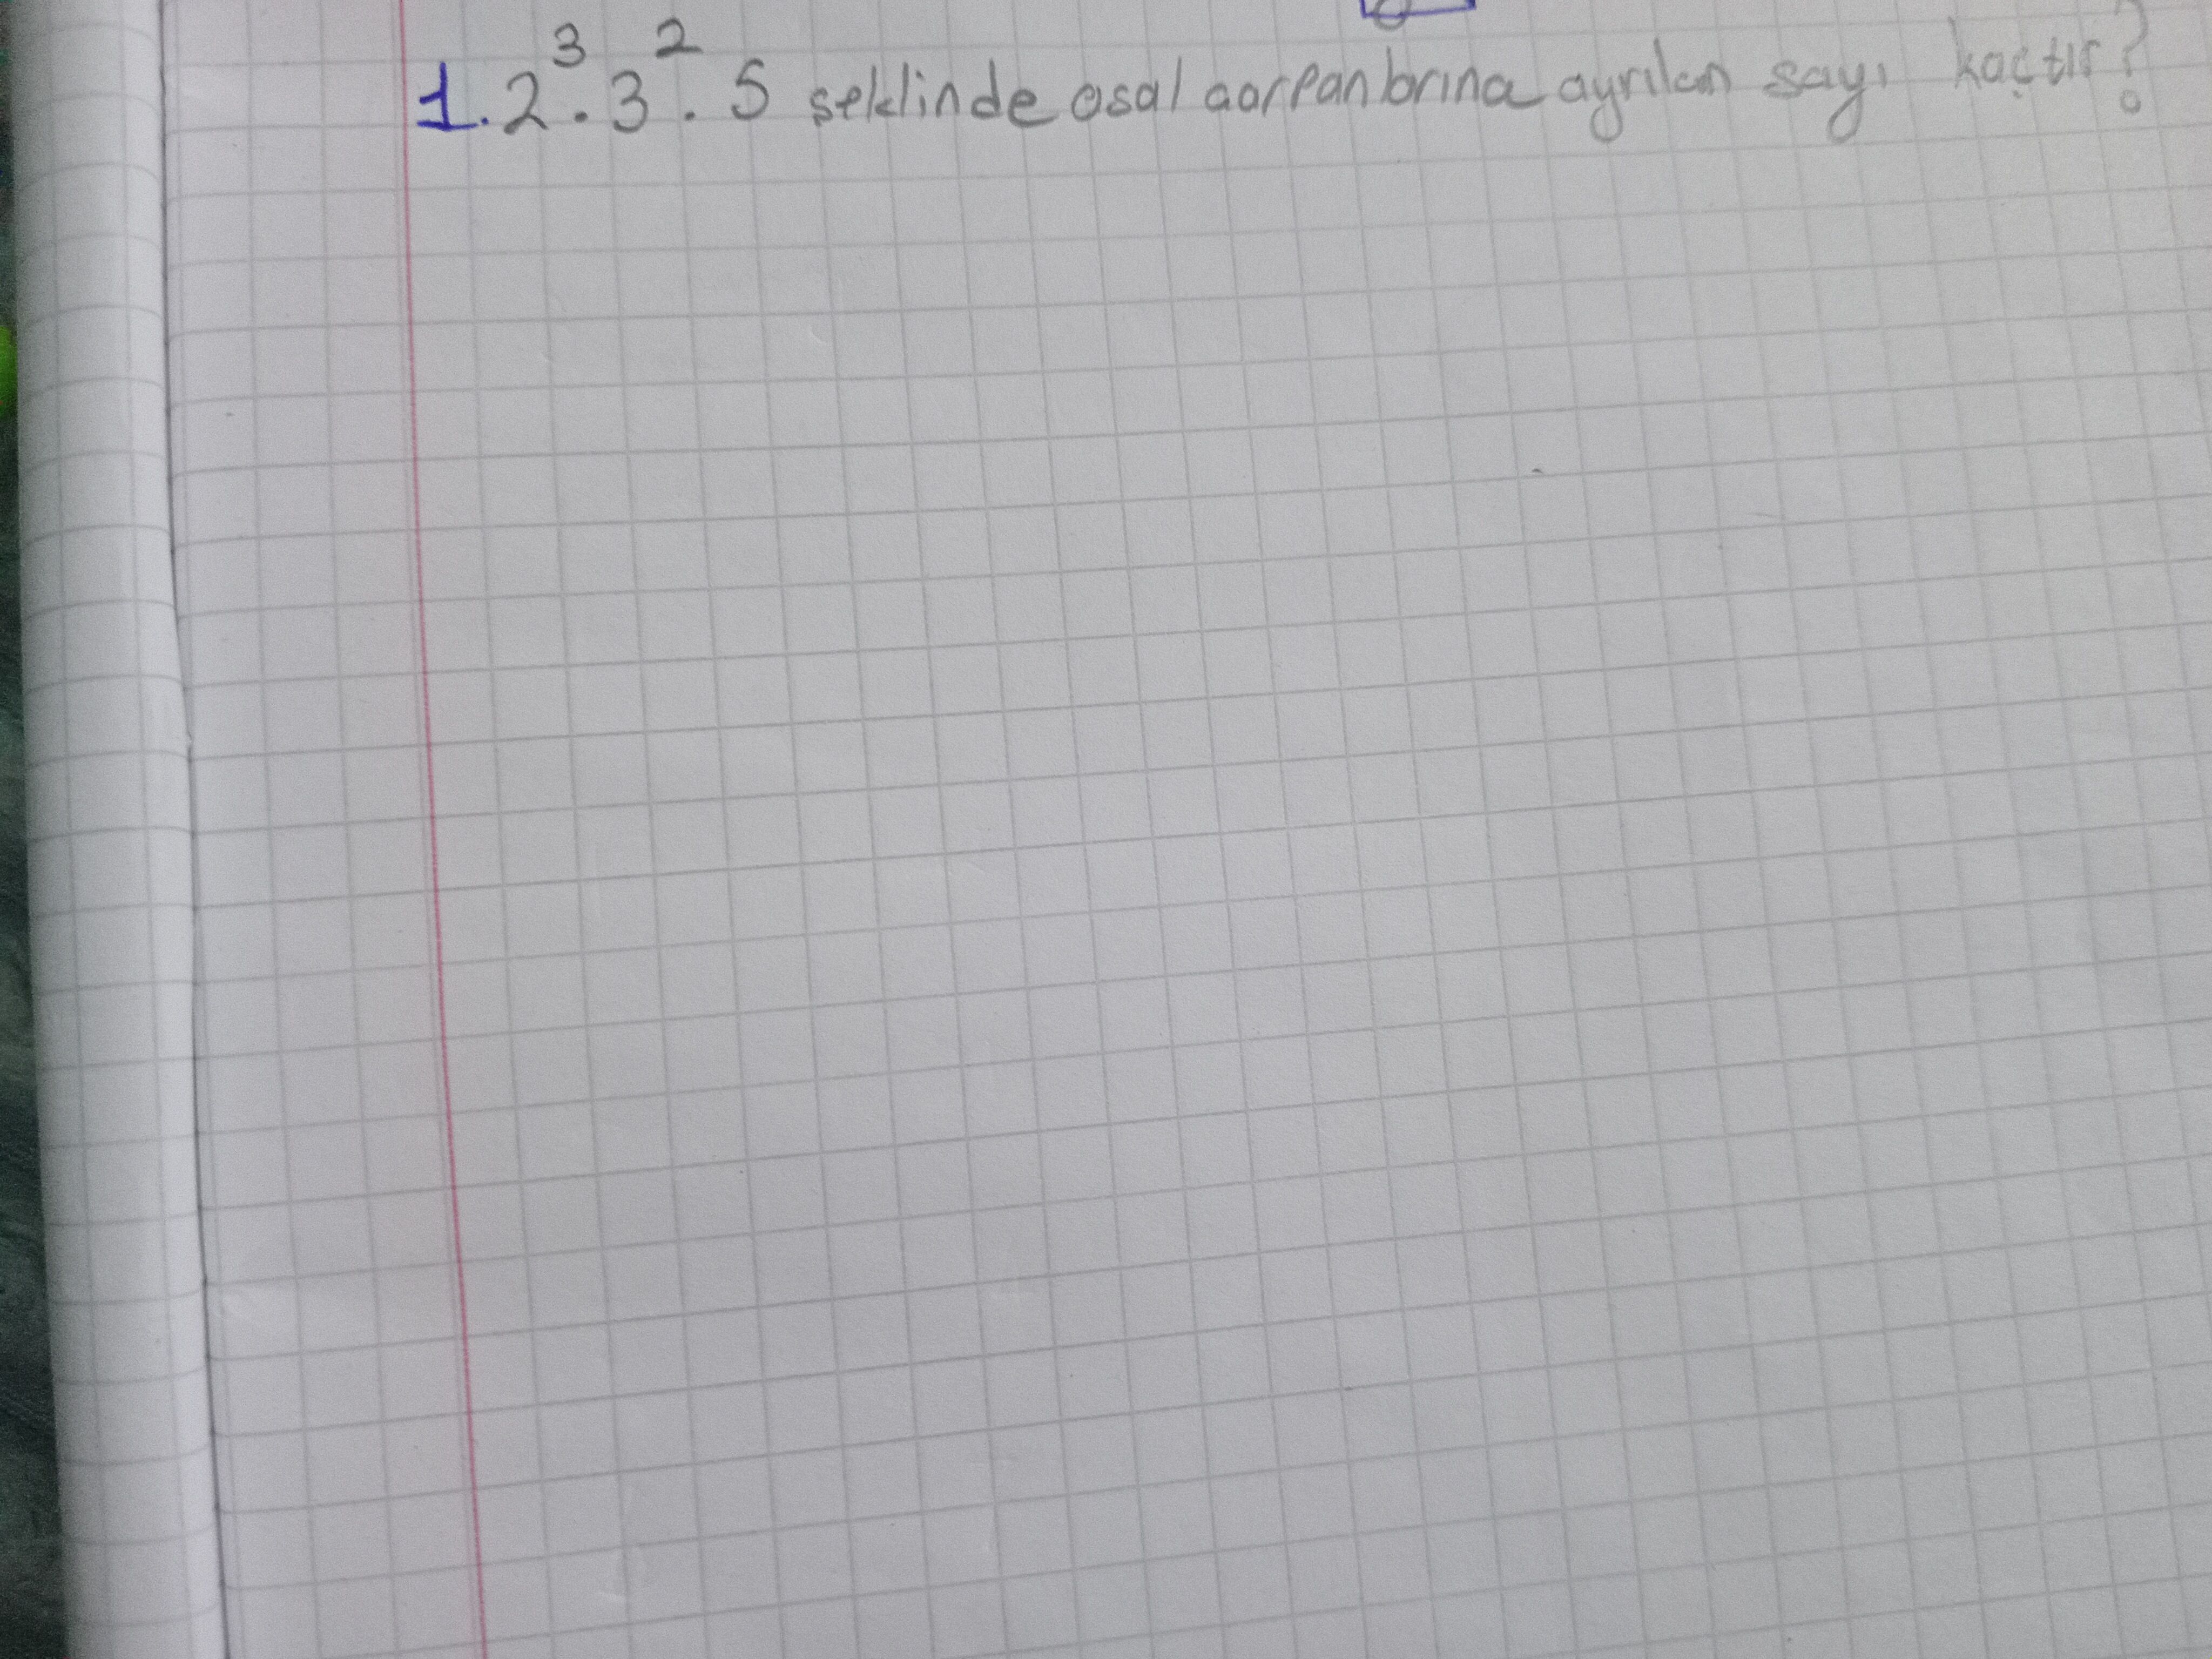 1. 2³ . 3² . 5 şeklinde asal aarpanlarına ayrılan sayı kaçtır?